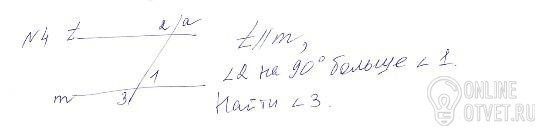 N4 t 2 a t || m,
1 ∠2 на 90° больше ∠1.
m 3 Найти ∠3.
ONLINE
OTVET.RU